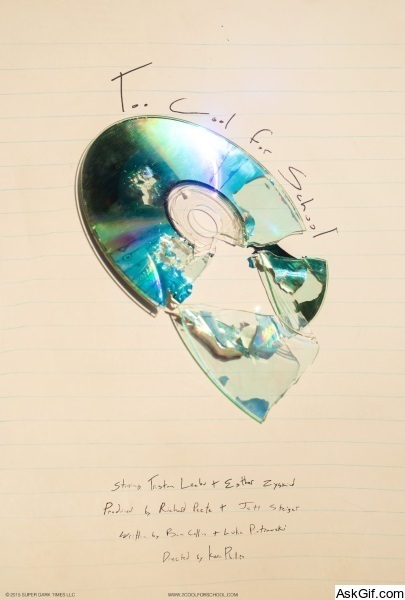 Too Cool for School
Starring Tristan Lesher + Esther Zyskind
Produced by Richard Peete + Jett Steiger
Written by Ben Collins + Luke Piotrowski
Directed by Kevin Phillips
© 2015 SUPER DARK TIMES LLC
WWW.2COOLFORSCHOOL.COM
AskGif.com